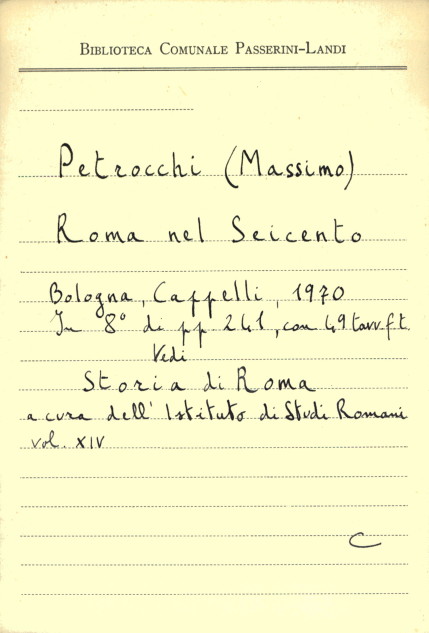 BIBLIOTECA COMUNALE PASSERINI-LANDI
Petrocchi (Massimo)
Roma nel Seicento
Bologna, Cappelli, 1970
In 8° di pp 241, con 49 tavv. f.t.
Vedi
Storia di Roma
a cura dell'Istituto di Studi Romani
vol. XIV
C